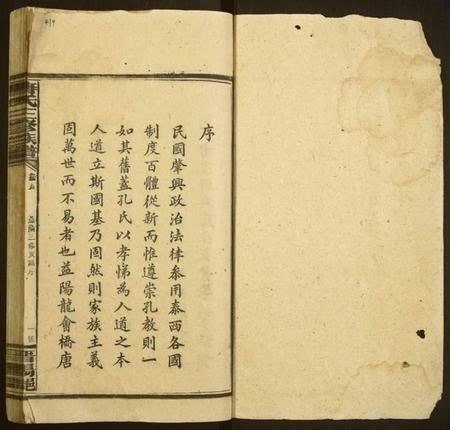 序
民國肇興政治法律叅用泰西各國
制度百體從新而惟遵崇孔教則一
如其舊蓋孔氏以孝悌為人道之本
人道立斯國基乃固然則家族主義
固萬世而不易者也益陽龍會橋唐
氏三修族譜